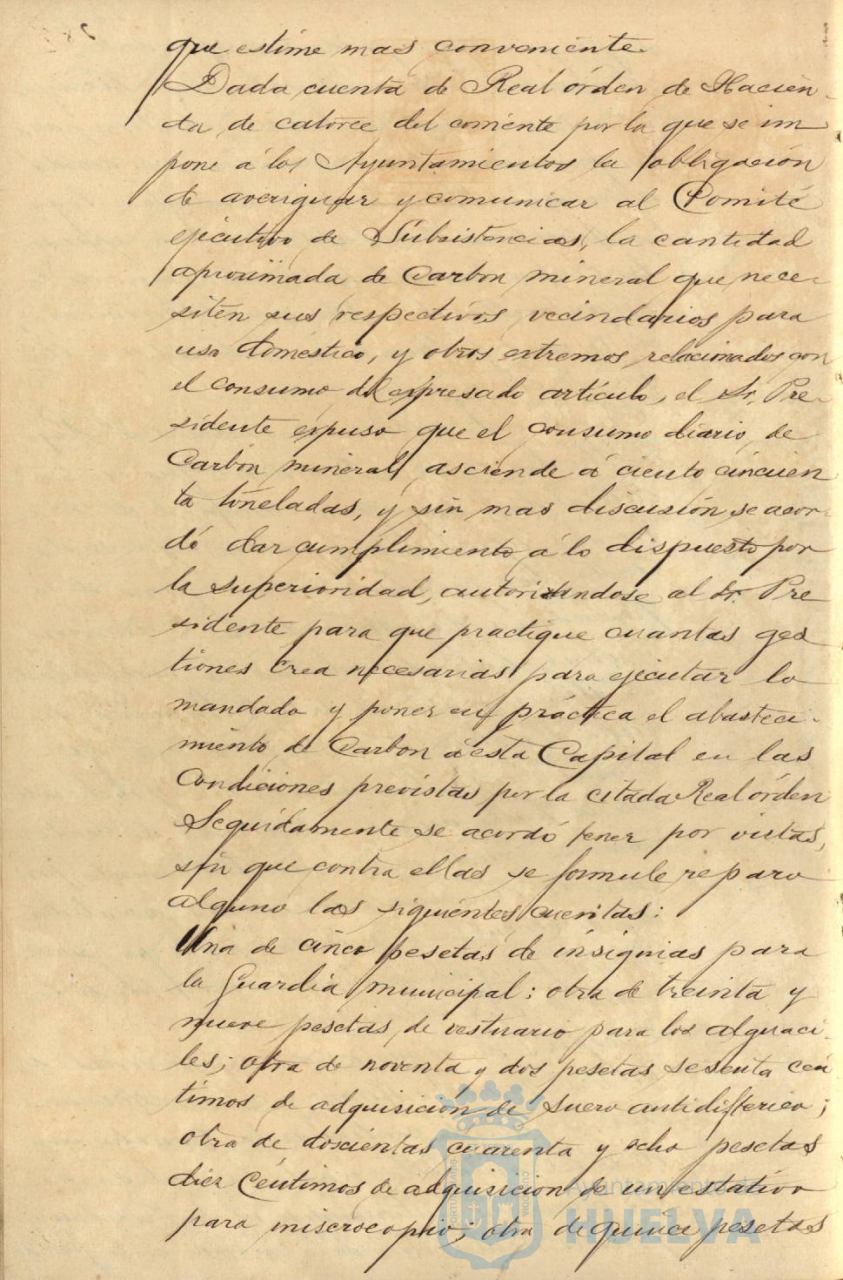 que estime mas conveniente.
Dada cuenta de Real órden de Hacien-
da de catorce del corriente por la que se im
pone á los Ayuntamientos la obligación
de averiguar y comunicar al Comité
ejecutivo de Subsistencias, la cantidad
aproximada de Carbon mineral que nece-
siten sus respectivos vecindarios para
uso doméstico, y otros extremos relacionados con
el consumo del expresado artículo, el Sr. Pre-
sidente expuso que el consumo diario de
Carbón mineral asciende á ciento cincuen
ta toneladas, y sin mas discusión se acor-
dó dar cumplimiento á lo dispuesto por
la superioridad, autorizandose al Sr. Pre
sidente para que practique cuantas ges
tiones crea necesarias para ejecutar lo
mandado y poner en práctica el abasteci-
miento de Carbon á esta Capital en las
Condiciones previstas por la citada Real órden
Seguidamente se acordó tener por vistas,
sin que contra ellas se formule reparo
alguno las siguientes cuentas:
Una de cinco pesetas de insignias para
la Guardia municipal; otra de treinta y
nueve pesetas de vestuario para los alguaci-
les; otra de noventa y dos pesetas sesenta cén
timos de adquisición de suero antidifterico;
otra de doscientas cuarenta y ocho pesetas
diez Céntimos de adquisicion de un estativo
para miscrocopio; otra de quince pesetas
Ayuntamiento de
HUELVA